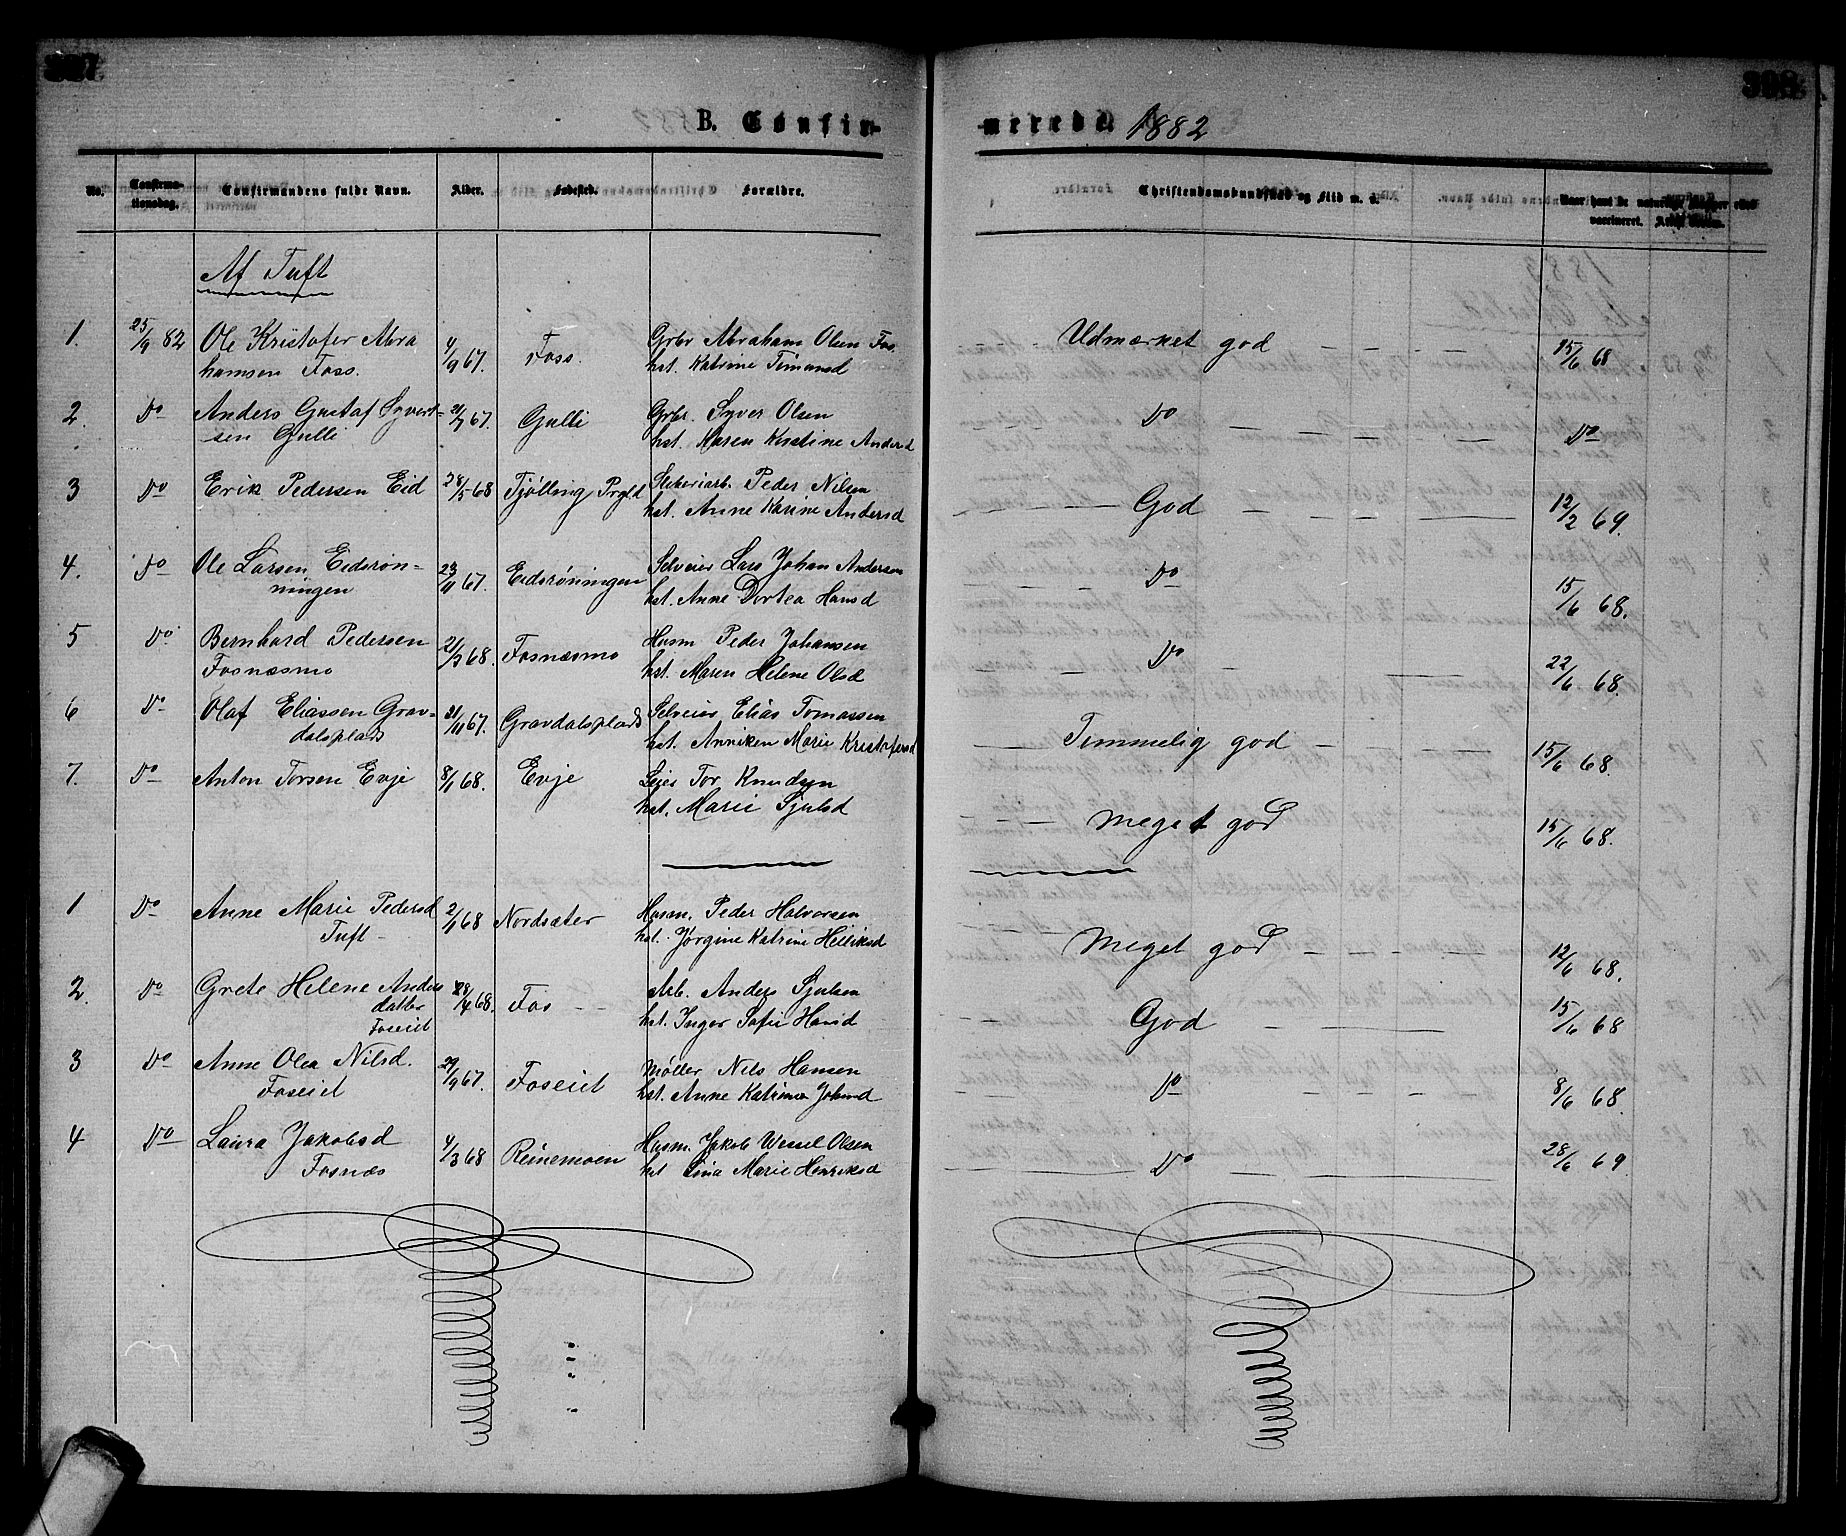 397
398
B. Confir-
merede. 1882
No.
Confirma-
tionsdag.
Confirmandens fulde Navn.
Alder.
Fødested.
Forældre.
Christendomskundskab og Flid m. v.
Naar havt de naturlige Kopper eller
vaccineret.
Af Tuft
1. 25/9 82 Ole Kristofer Abra 4/9 67. Foss. Grbr Abraham Olsen Fos. Udmærket god 15/6 68
hamsen Foss. hst. Katrine Timansd
2. Do Anders Gustaf Syvert- 21/7 67. Gulli Grbr. Syver Olsen Do Do
sen Gulli hst. Maren Kristine Andersd
3 Do Erik Pedersen Eid 28/5 68 Tjølling Prgld Peder Nilsen God 12/2 69.
hst. Anne Karine Andersd
4. Do Ole Larsen Eidsrøn- 23/11 67. Eidsrøningen Selveier Lars Johan Andersen Do 15/6 68.
ningen hst. Anne Dortea Hansd
5 Do Bernhard Pedersen 21/3 68. Fosnæsmo Husm Peder Johansen Do 22/6 68.
Fosnæsmo hst. Maren Helene Olsd
6 Do Olaf Eliassen Grav- 21/11 67. Gravdalsplads Selveier Elias Tomassen Temmelig god 15/6 68.
dalsplads hst. Anniken Marie Kristofersd
7. Do Anton Torsen Evje 8/1 68. Evje Leier Tor Knudsen Meget god 15/6 68.
hst. Marie Sjulsd
1 Do Anne Marie Pedersd 2/1 68 Nordsæter Husm. Peder Halvorsen Meget god 12/6 68.
Tuft hst. Jørgine Katrine Helliksd
2. Do Grete Helene Anders 28/4 68. Fos Arb. Anders Sjulsen God 15/6 68
datter hst. Inger Sofie Hansd
Foseiet
3 Do Anne Olea Nilsd. 29/9 67. Foseiet Møller Nils Hansen Do 8/6 68.
Foseiet hst. Anne Katrine Johnsd
4 Do Laura Jakobsd 4/3 68 Reinemoen Husm. Jakob Wessel Olsen Do 28/6 69
Fosnæs hst Lina Marie Henriksd